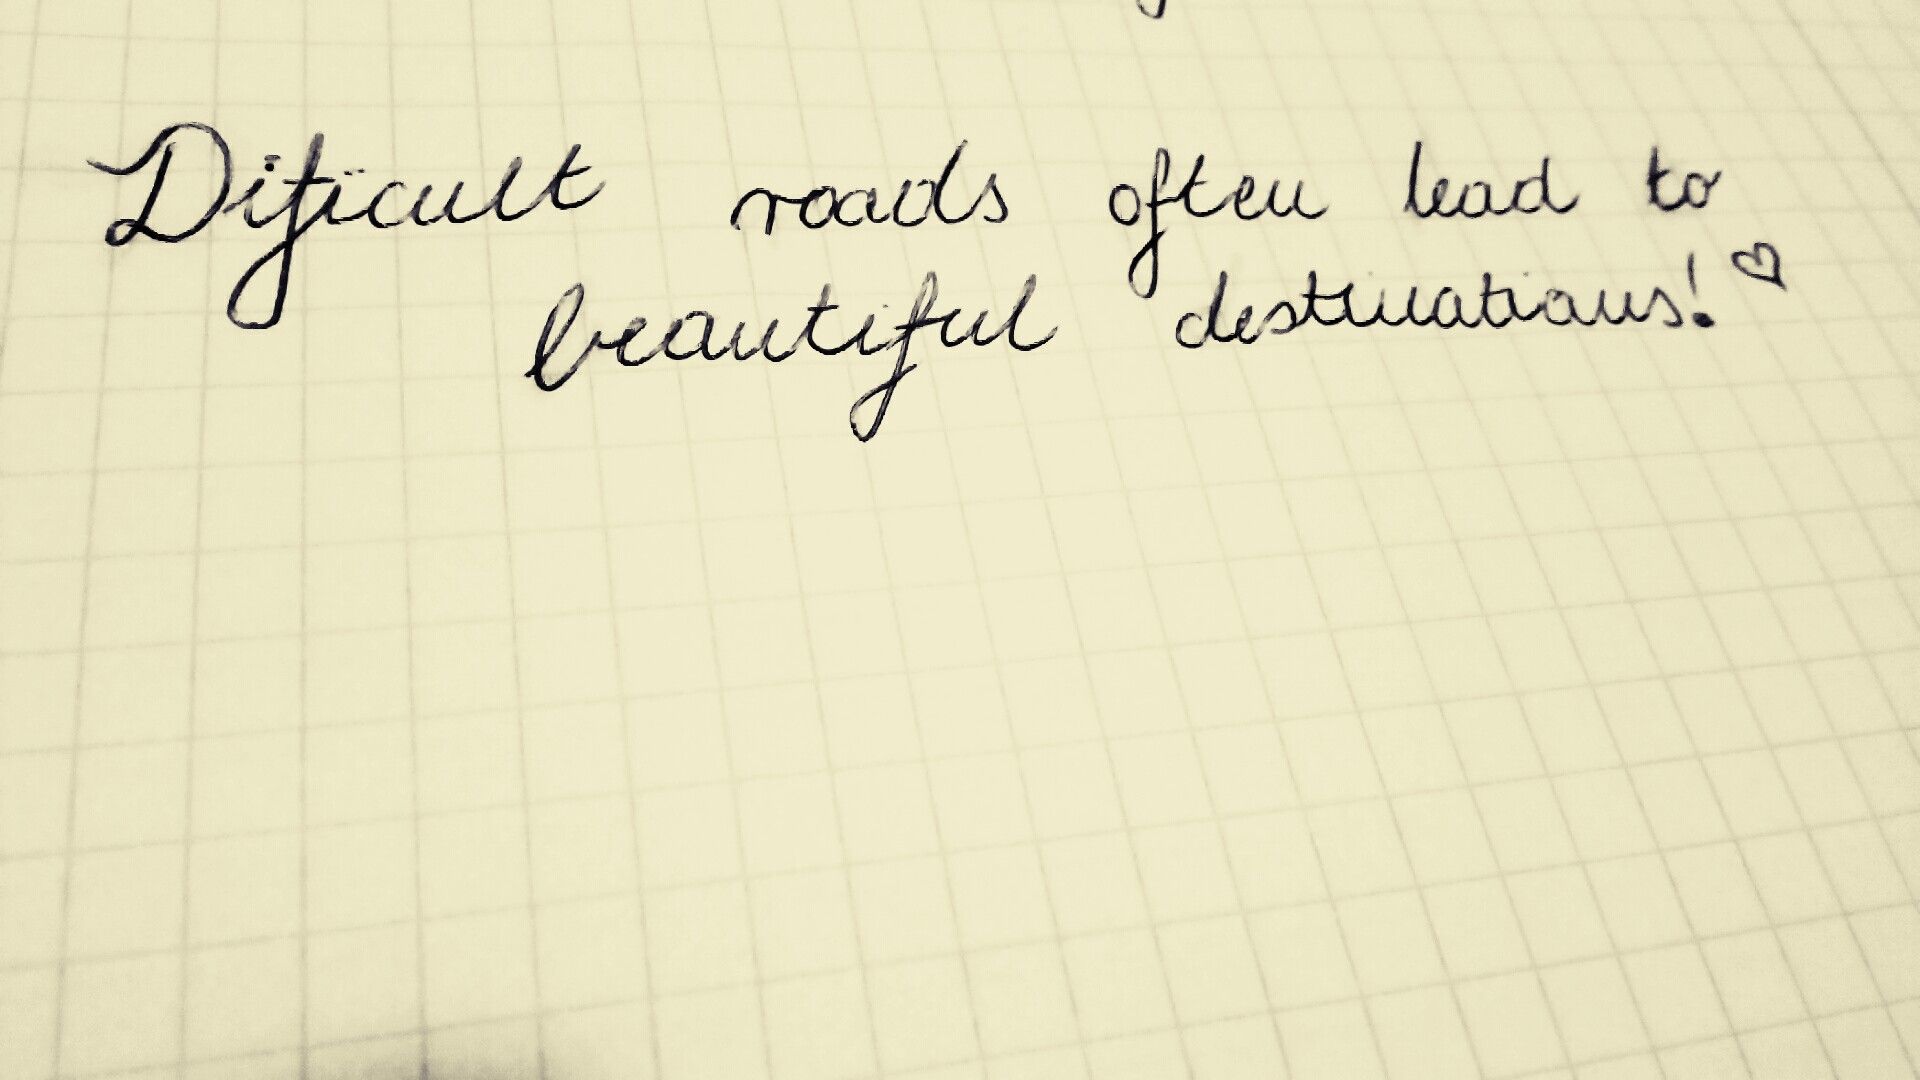 Dificult roads often lead to
beautiful destinations! ♡